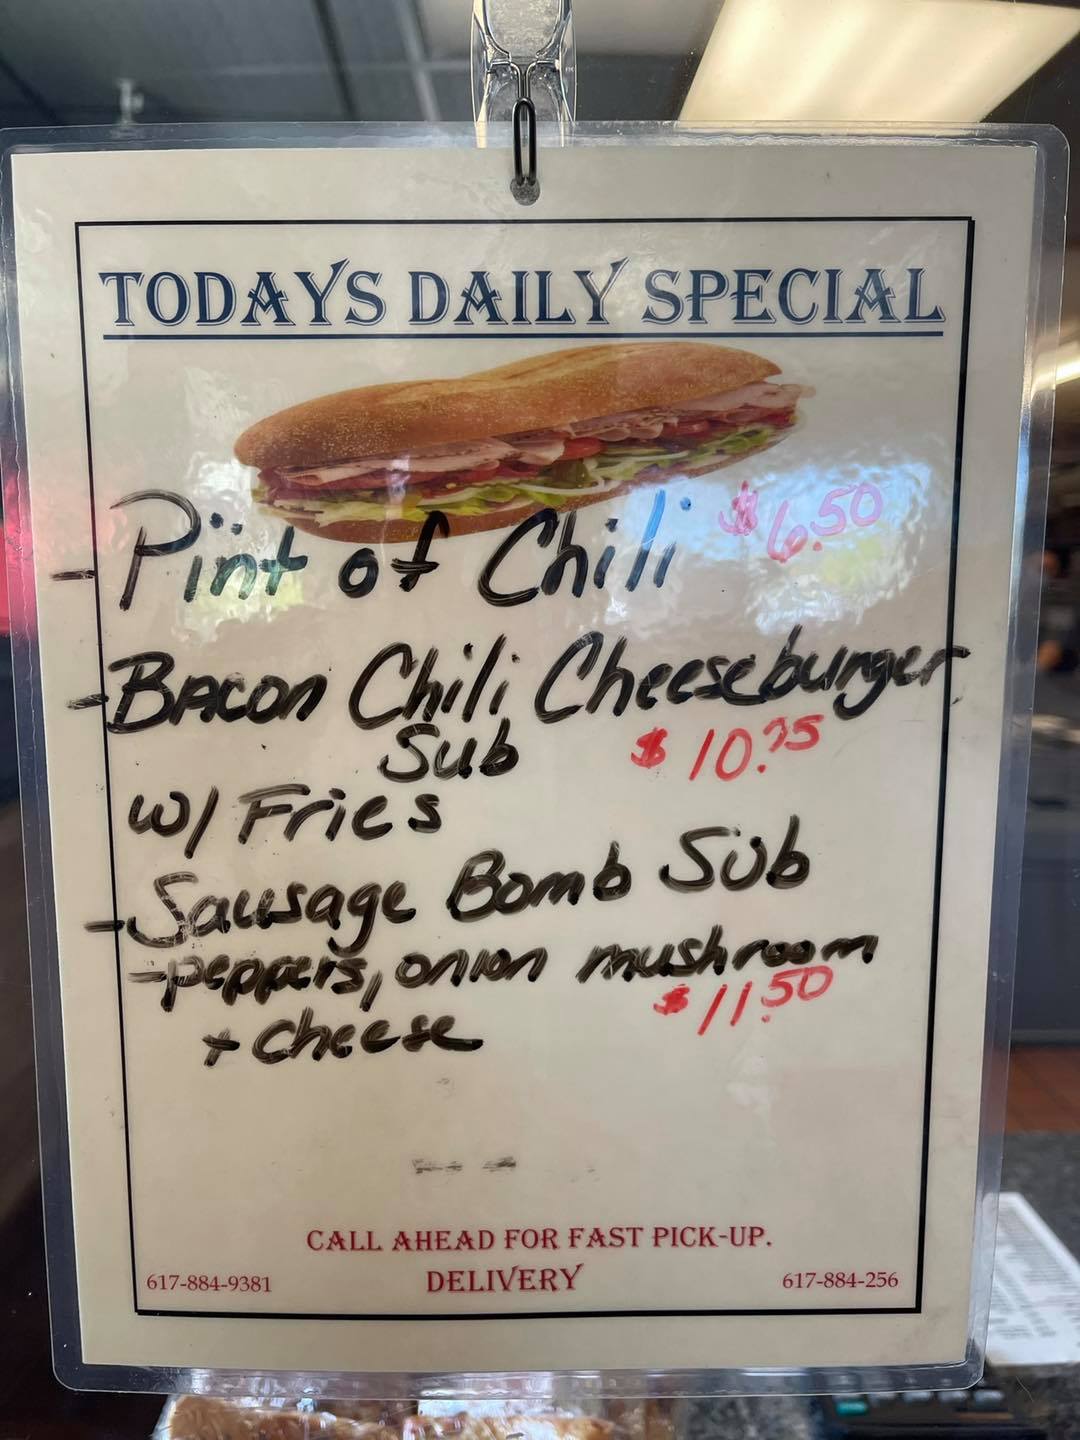 TODAYS DAILY SPECIAL
- Pint of Chili $6.50
- Bacon Chili Cheeseburger
Sub $10.75
w/ Fries
- Sausage Bomb Sub
- peppers, onion mushroom
$11.50
+ cheese
CALL AHEAD FOR FAST PICK-UP.
617-884-9381 DELIVERY 617-884-256